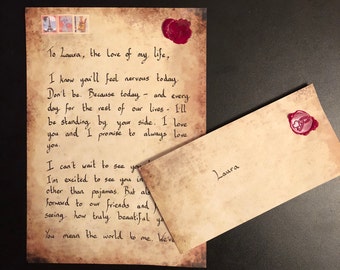 To Laura, the love of my life,
I know you'll feel nervous today.
Don't be. Because today - and every
day for the rest of our lives - I'll
be standing by your side. I love
you and I promise to always love
you.
I can't wait to see you
I'm excited to see you i
other than pajamas. But al
forward to our friends and
seeing how truly beautiful yo
You mean the world to me. We've
Laura